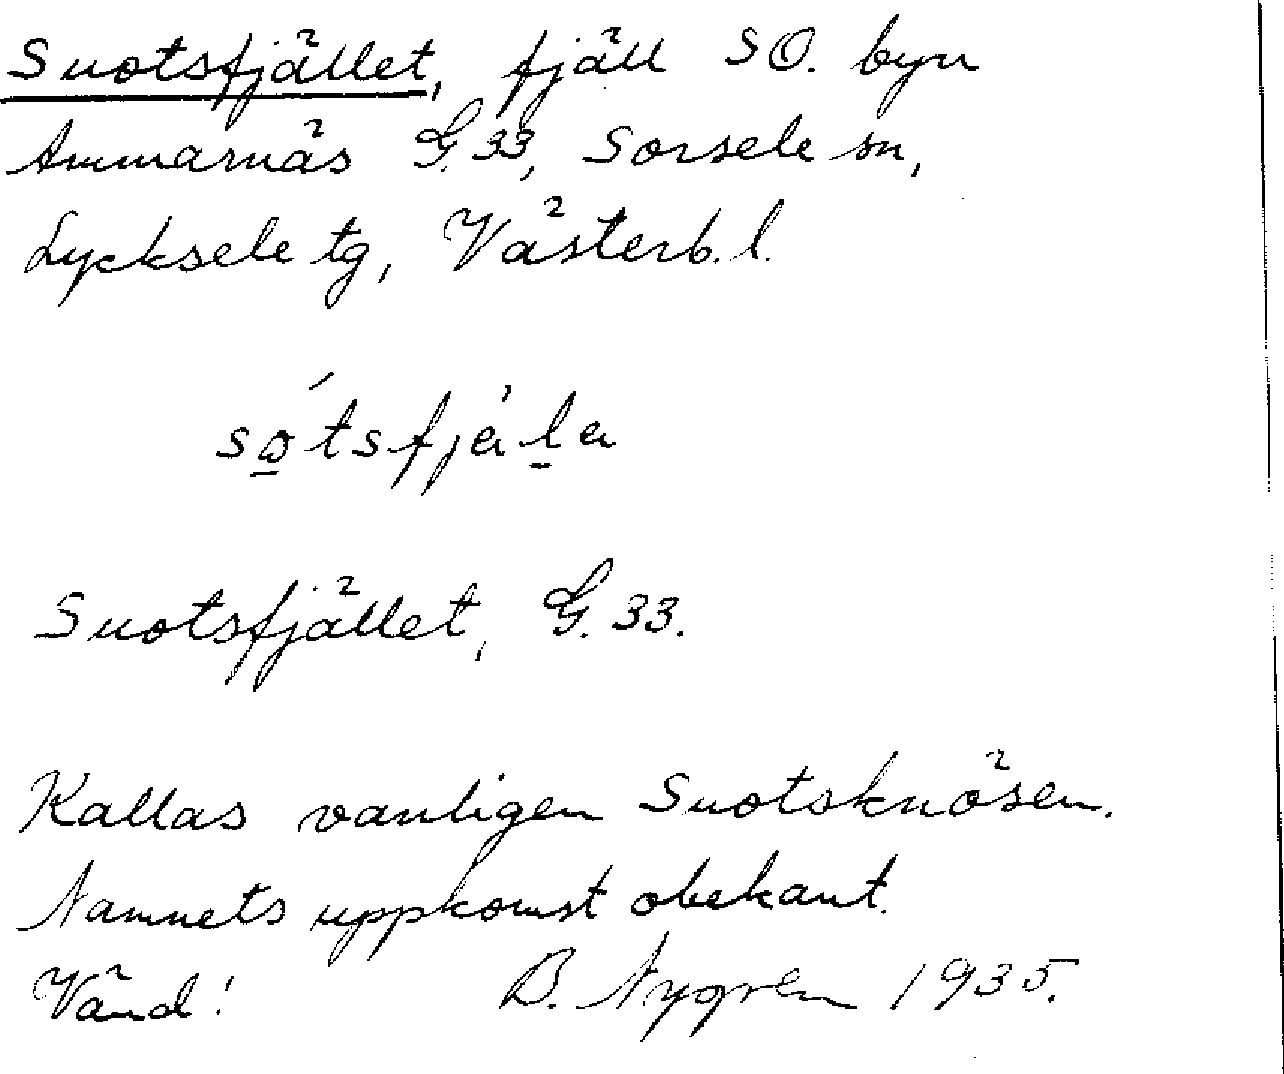 Suotsfjället, fjäll SO. byn
Ammarnäs G. 33, Sorsele sn,
Lycksele tg, Västerb. l.
Suotsfjället, G. 33.
Kallas vanligen Suotsknösen.
Namnets uppkomst obekant.
Vänd! B. Nygren 1935.